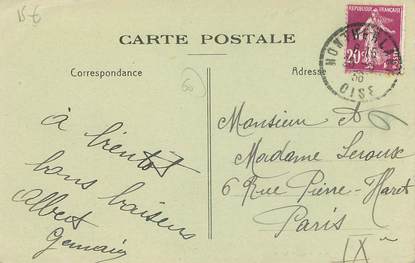 15 €
CARTE POSTALE
Correspondance
Adresse
RÉPUBLIQUE FRANÇAISE
20c
OISE
à bientôt
bons baisers
Albert
Germain
Monsieur et
Madame Leroux
6 Rue Pierre-Haret
Paris
IXe